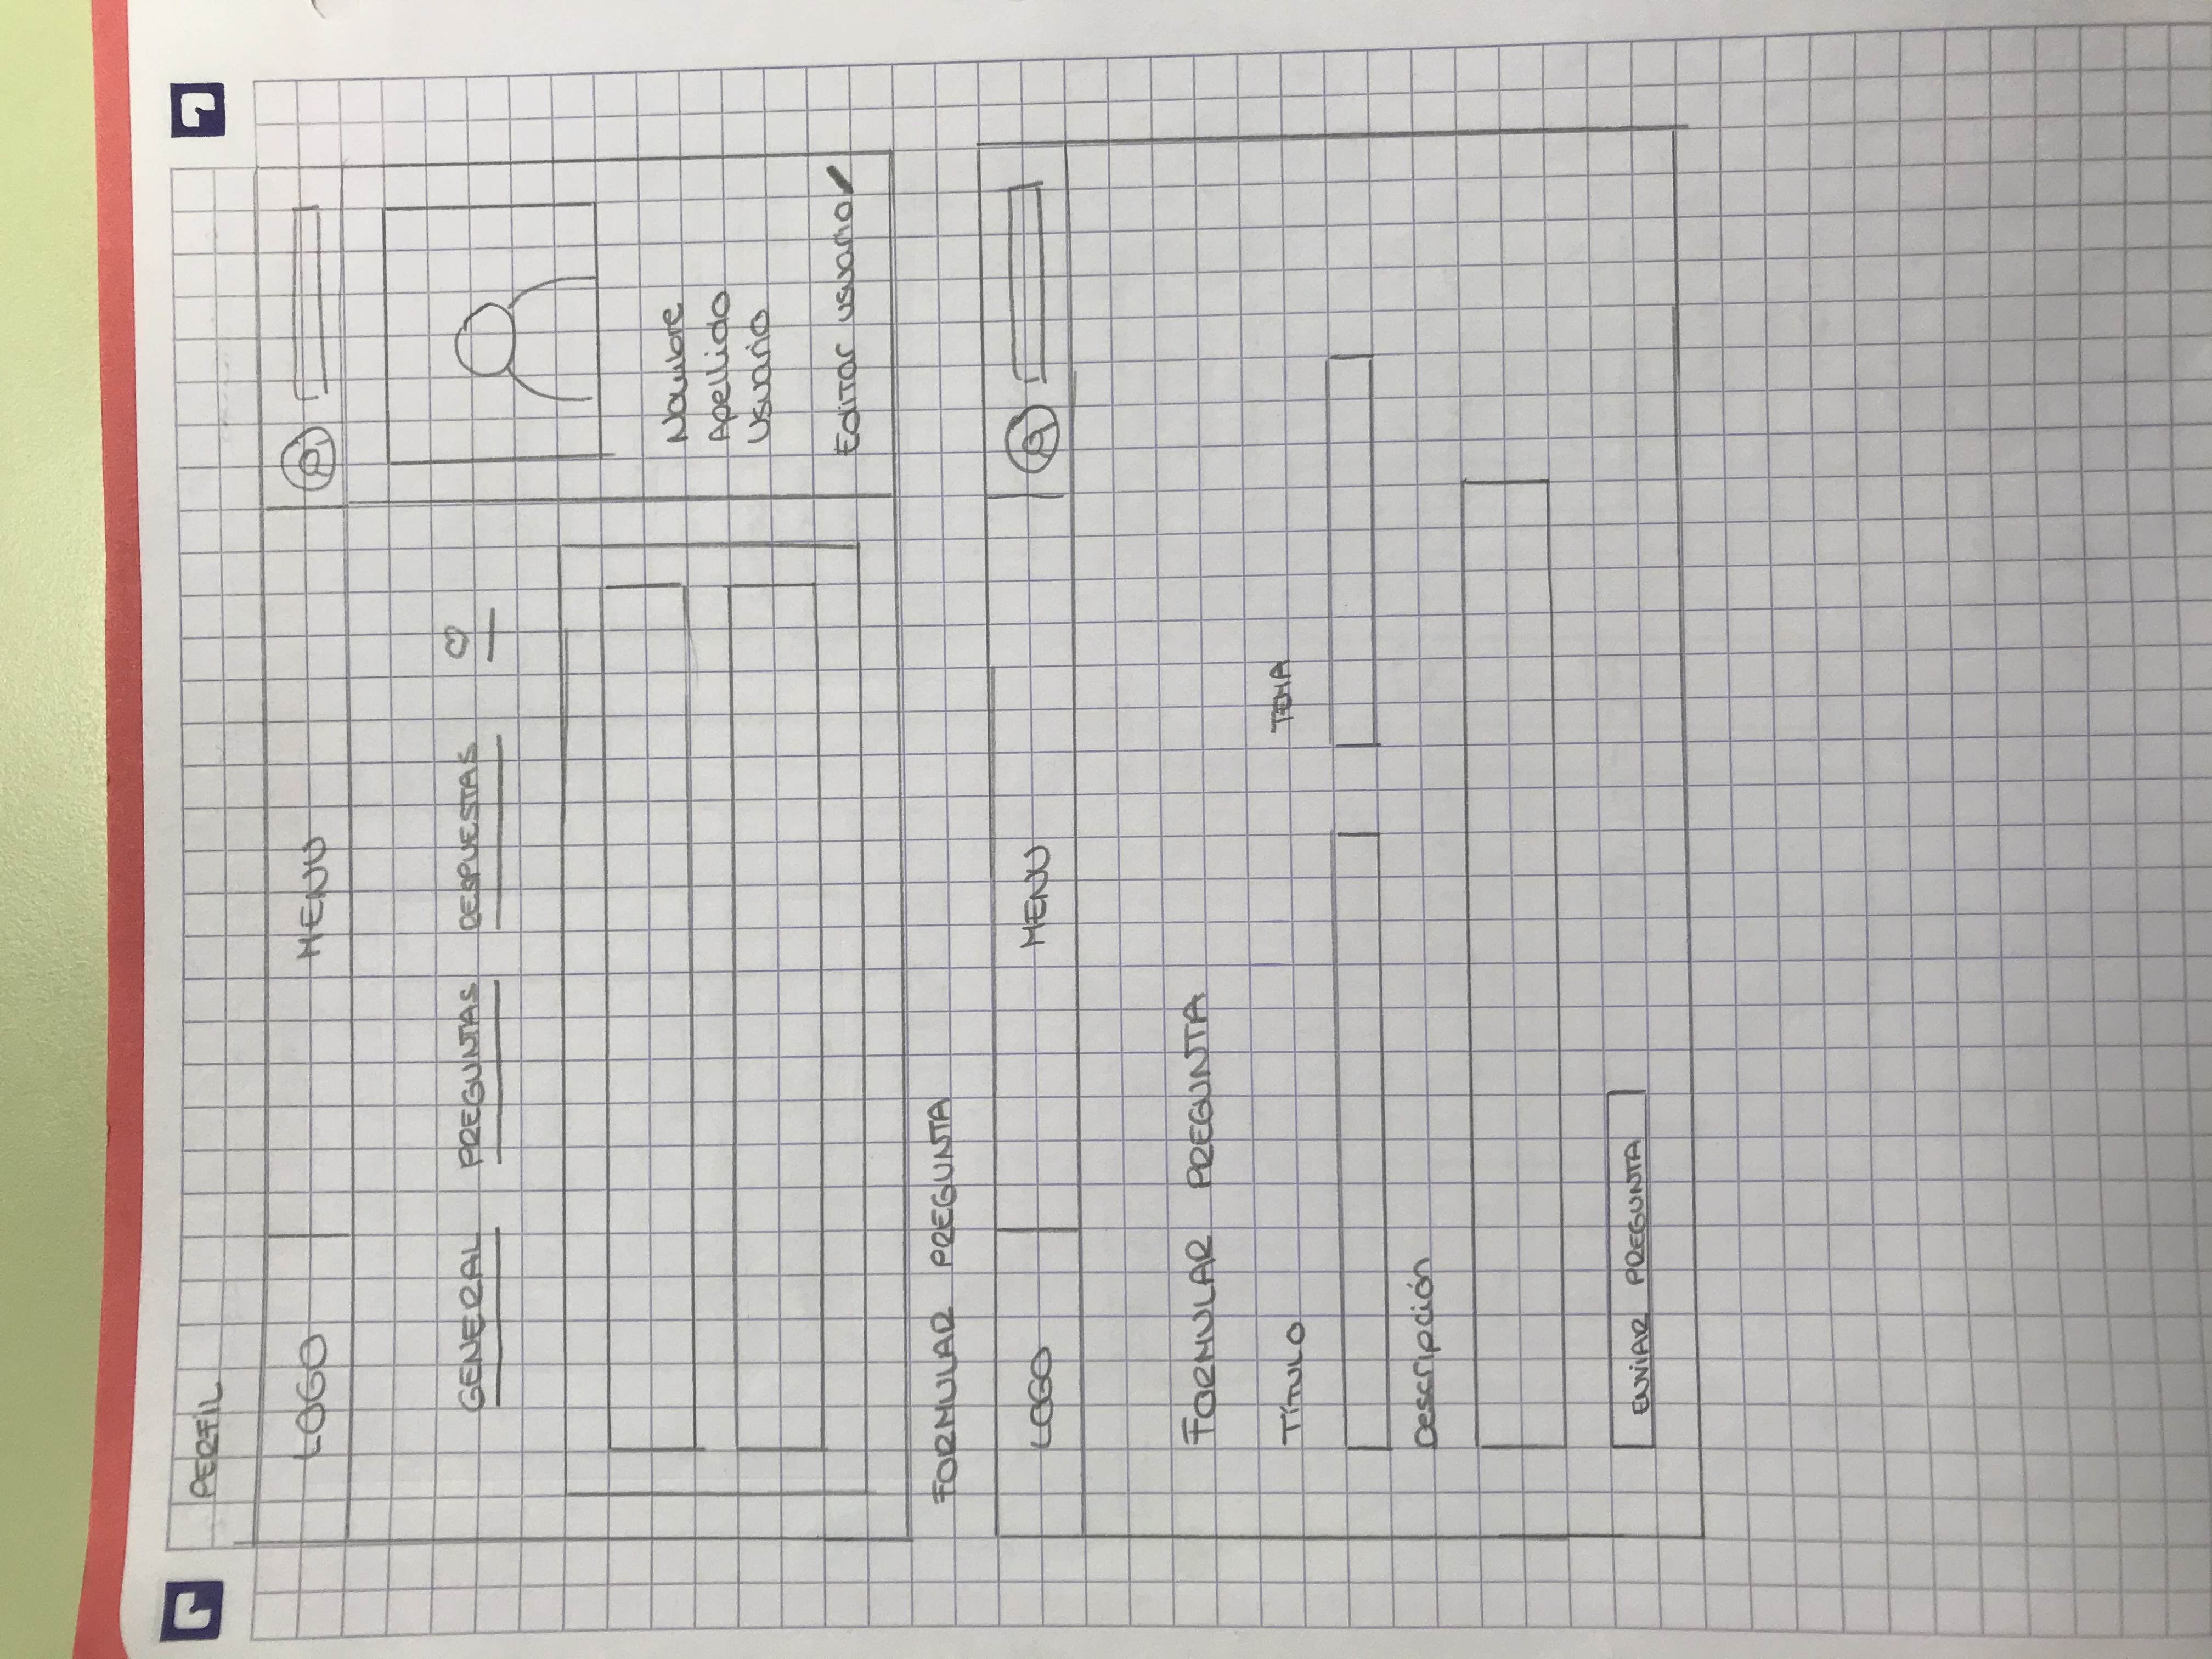 PERFIL
LOGO MENU
GENERAL PREGUNTAS RESPUESTAS
Nombre
Apellido
Usuario
Editar usuario
FORMULAR PREGUNTA
LOGO MENU
FORMULAR PREGUNTA
TÍTULO TEMA
Descripción
ENVIAR PREGUNTA